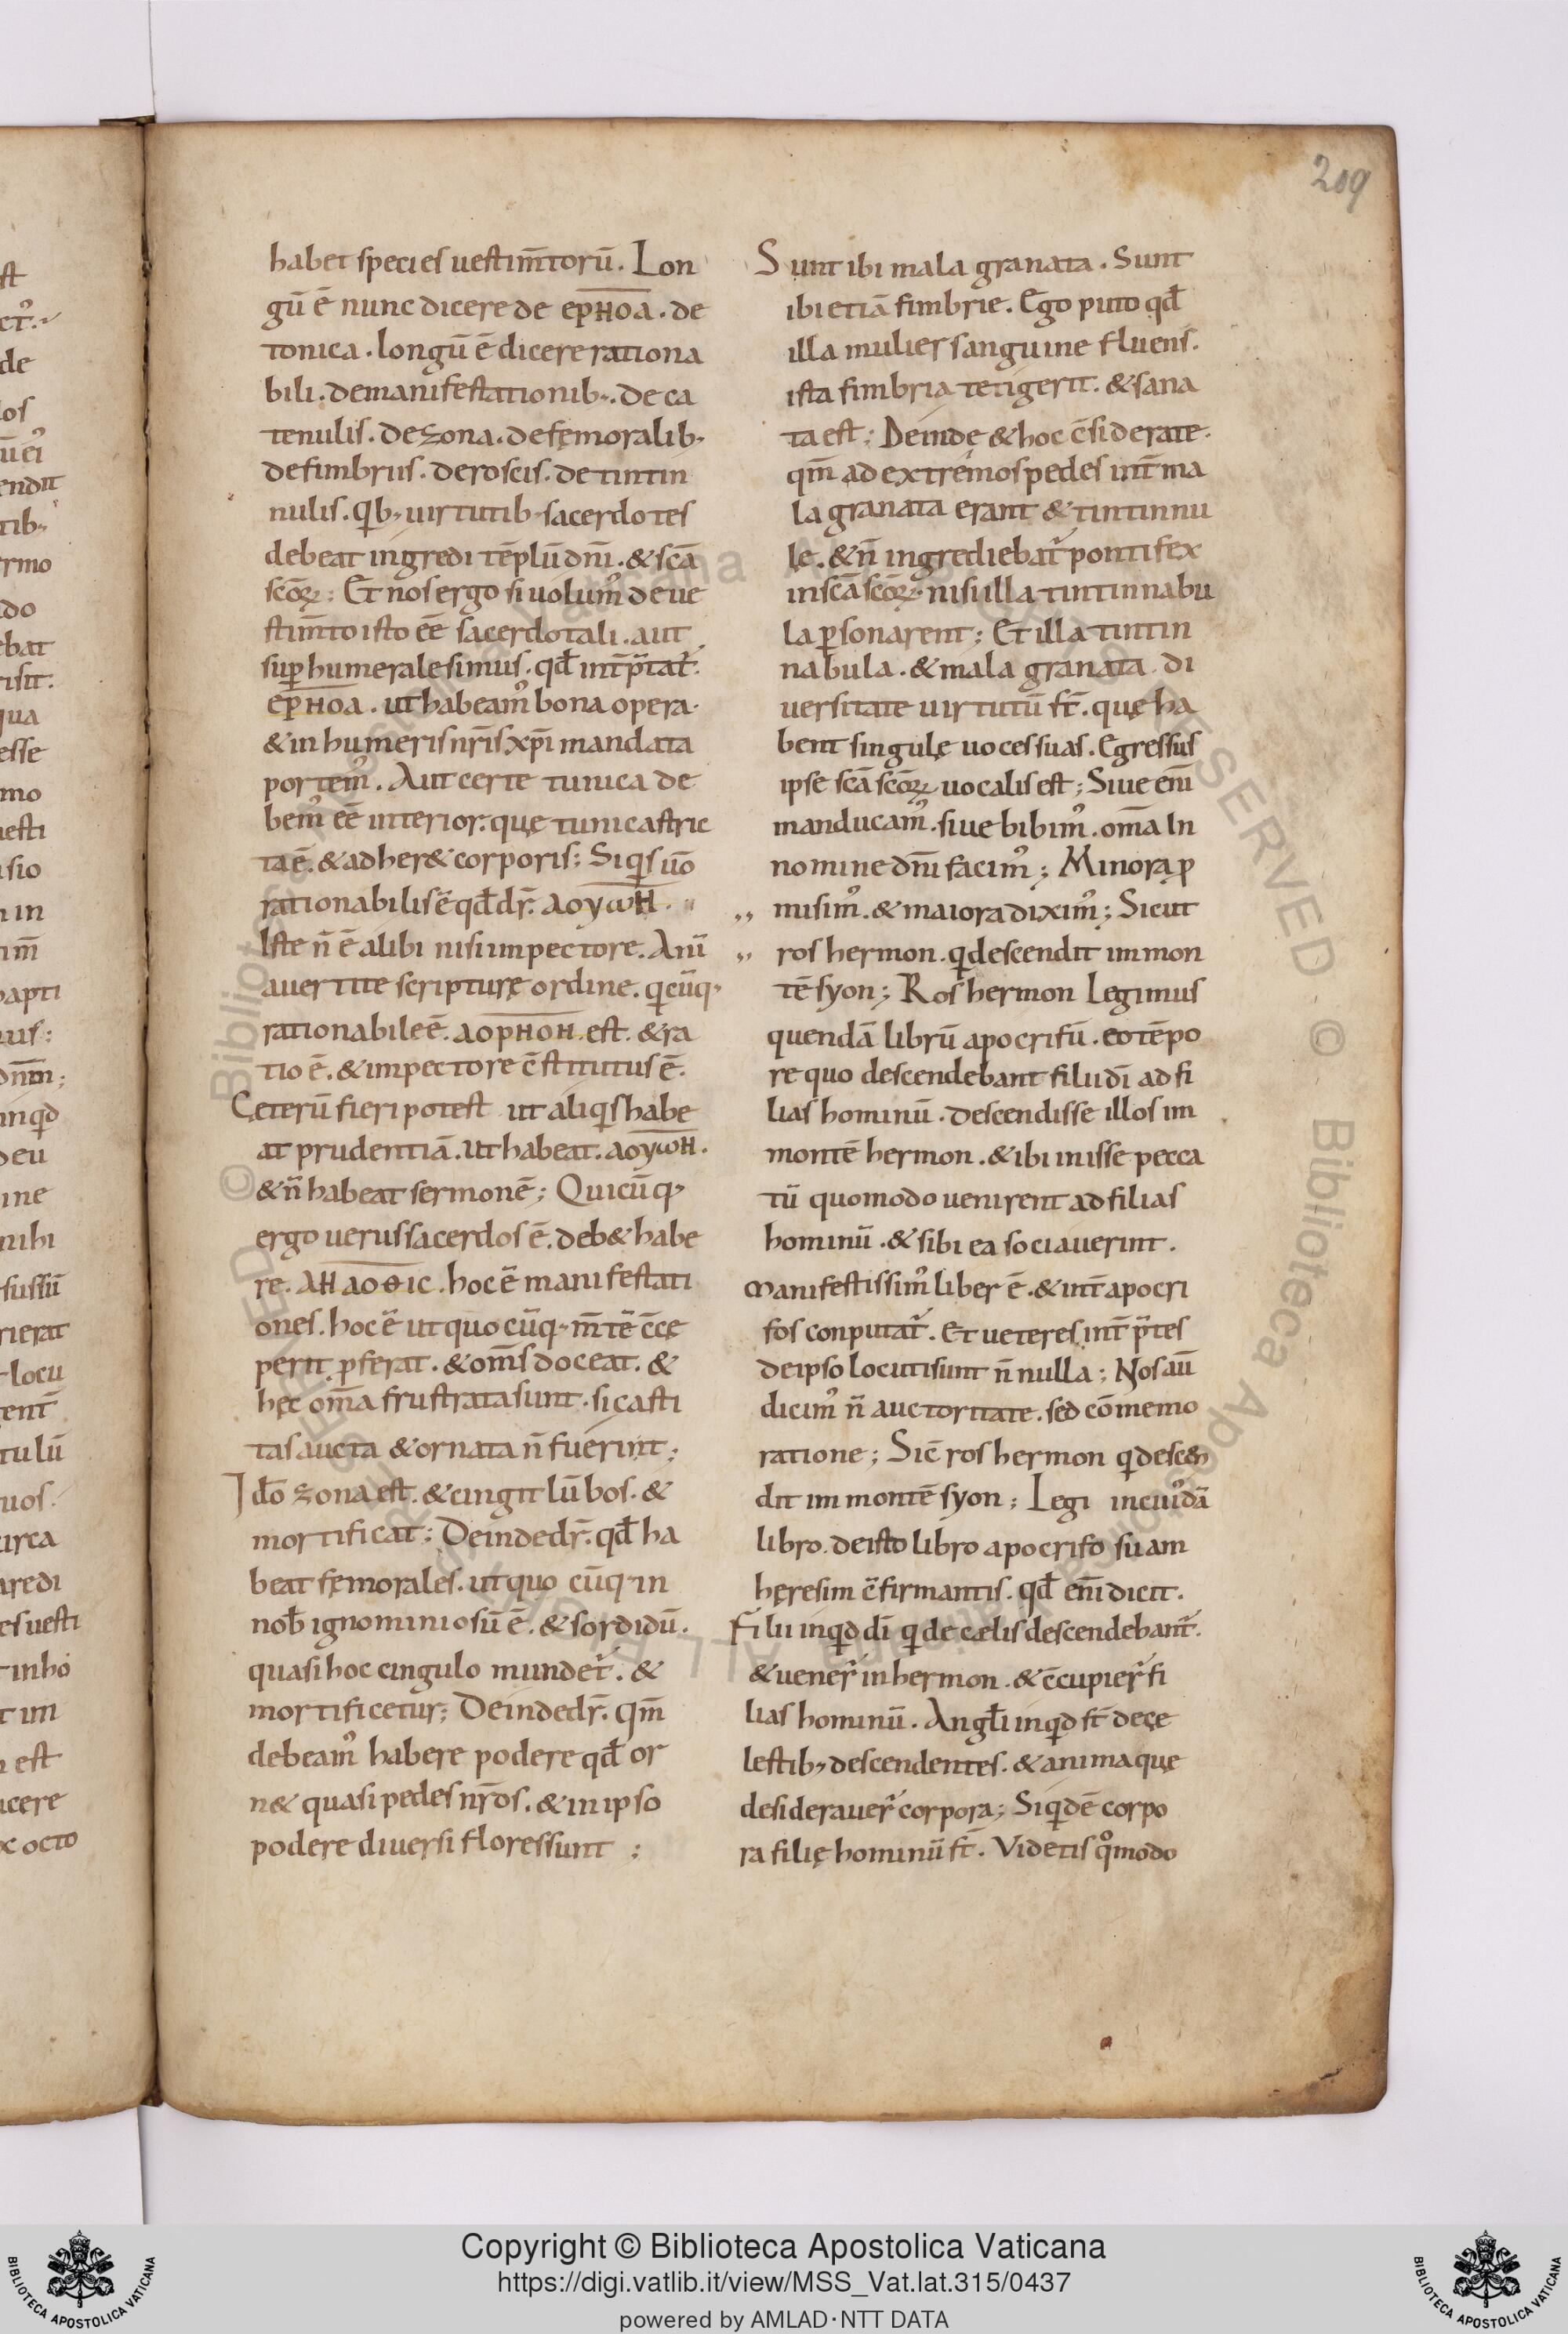 209
habet species uestim̅toru̅. Lon
gu̅ e̅ nunc dicere de epHoa. de
tonica. longu̅ e̅ dicere rationa
bili. demanifestationib;. de ca
tenulis. dezona. defęmoralib;
defimbriis. deroscis. detintin
nulis. Qib; uirtutib; sacerdotes
debeat ingredi te̅plu̅ dn̅i. & sc̅a
sc̅oꝝ: Et nos ergo si uolum᾿ deue
stim̅to isto ee̅ sacerdotali. aut
suꝑhumerale simus. qđ int̅p̅tat᾿.
epHoa. ut habeam᾿ bona opera.
& in humeris nr̅is xp̅i mandata
portem᾿. Aut certe tunica de
bem᾿ ee̅ interior. quę tunica stric
ta e̅. & adher& corporis; Siqis uo̅
rationabilis e̅ qđ dr̅. aoyωH.
Iste n̅ e̅ alibi nisi impectore. Ani̅
auertite scripturę ordine. qicu̅q;
rationabile e̅. aopHoH. est. & ra
tio e̅. & impectore c̅stitutus e̅.
Ceteru̅ fieri potest ut aliqis habe
at prudentia̅. ut habeat. aoyωH.
& n̅ habeat sermone̅; Quicu̅q;
ergo uerus sacerdos e̅. deb& habe
re. AH aoθic. hoc e̅ manifestati
ones. hoc e̅ ut quocu̅q; m̅te c̅cę
perit ꝓferat. & om̅s doceat. &
hęc om̅a frustrata sunt. si casti
tas aucta & ornata n̅ fuerint;
Ido̅ zona est. & cingit lu̅bos. &
mortificat; Deinde dr̅. qđ ha
beat fęmorales. ut quocu̅q; in
nob̅ ignominiosu̅ e̅. & sordidu̅.
quasi hoc cingulo mundet᾿. &
mortificetur; Deinde dr̅. qm̅
debeam᾿ habere podere qđ or
n& quasi pedes nr̅os. & in ipso
podere diuersi flores sunt ;
Sunt ibi mala granata. Sunt
ibi etia̅ fimbrie. Ego puto qđ
illa mulier sanguine fluens.
ista fimbria tetigerit. & sana
ta est; Deinde & hoc c̅siderate.
qm̅ ad extremos pedes int̅ ma
la granata erant & tintinnu
lę. & n̅ ingrediebat᾿ pontifex
in sc̅a sc̅oꝝ. nisi illa tintinnabu
la ꝑsonarent; Et illa tintin
nabula. & mala granata di
uersitate uirtutu̅ st̅. quę ha
bent singulę uoces suas. Egressus
ipse sc̅a sc̅oꝝ uocalis est; Siue eni̅
manducam᾿. siue bibim᾿. om̅a In
nomine dn̅i facim᾿; Minora ꝓ
,, misim᾿. & maiora dixim᾿; Sicut
,, ros hermon. qi descendit immon
te̅ syon; Ros hermon Legimus
quenda̅ libru̅ apocrifu̅. eo te̅po
re quo descendebant filii di̅ ad fi
lias hominu̅. descendisse illos im
monte̅ hermon. & ibi inisse pecca
tu̅ quomodo uenirent ad filias
hominu̅. & sibi ea sociauerint.
Manifestissim᾿ liber e̅. & int̅ apocri
fos conputat᾿. Et ueteres int̅p̅tes
de ipso locuti sunt n̅ nulla; Nos au̅
dicim᾿ n̅ auctoritate. sed co̅memo
ratione; Sic̅ ros hermon qi descen
dit im monte̅ syon; Legi in cui᾿da̅
libro. de isto libro apocrifo suam
hęresim c̅firmantis. qđ eni̅ dicit.
Filii inqid di̅ qi de cælis descendebant᾿.
& uener᾿ in hermon. & c̅cupier᾿ fi
lias hominu̅. Angl̅i inqid st̅ de cę
lestib; descendentes. & anima quę
desiderauer᾿ corpora; Siqide̅ corpo
ra filię hominu̅ st̅. Videtis qomodo
Copyright © Biblioteca Apostolica Vaticana
https://digi.vatlib.it/view/MSS_Vat.lat.315/0437
powered by AMLAD·NTT DATA